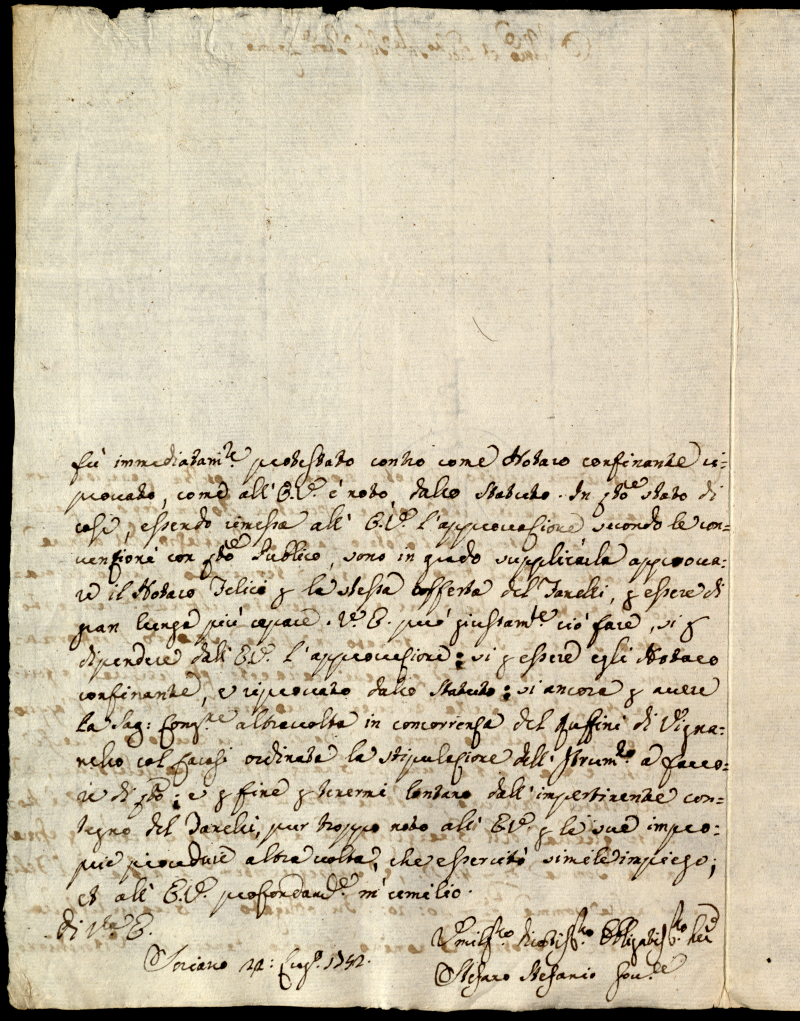 fù immediatam.te protestato contro come Notaro confinante ri=
provato, come all' E.V. è noto, dallo Statuto. In q.to stato di
cose, essendo rimessa all' E.V. l'approvazione secondo le con=
venzioni con q.to Publico, sono in grado supplicarla approva=
re il Notaro Felice p la stessa offerta del Janelli, p essere di
gran lunga più capace. V.E. però giustam.te ciò fare, si p
dipendere dall' E.V. l'approvazione; si p essere egli Notaro
confinante, e riprovato dallo Statuto; si ancora p avere
la Sag: Cons.te altra volta in concorrenza del Ruffini di Vigna=
nello col ordinata la stipulazione dell' Istrum.to a favo=
re di q.to; e p fine p tenermi lontano dall' impertinente con=
tegno del Janelli, pur troppo noto all' E.V. p le sue impro=
prie procedure altra volta, che esercitò simile impiego;
et all' E.V. profondam.te m' umilio.
Di V.ra E.
Umiliss.mo Obligatiss.mo
Soriano 22: Lug.o 1742.
Stefano Stefanio Gov.re